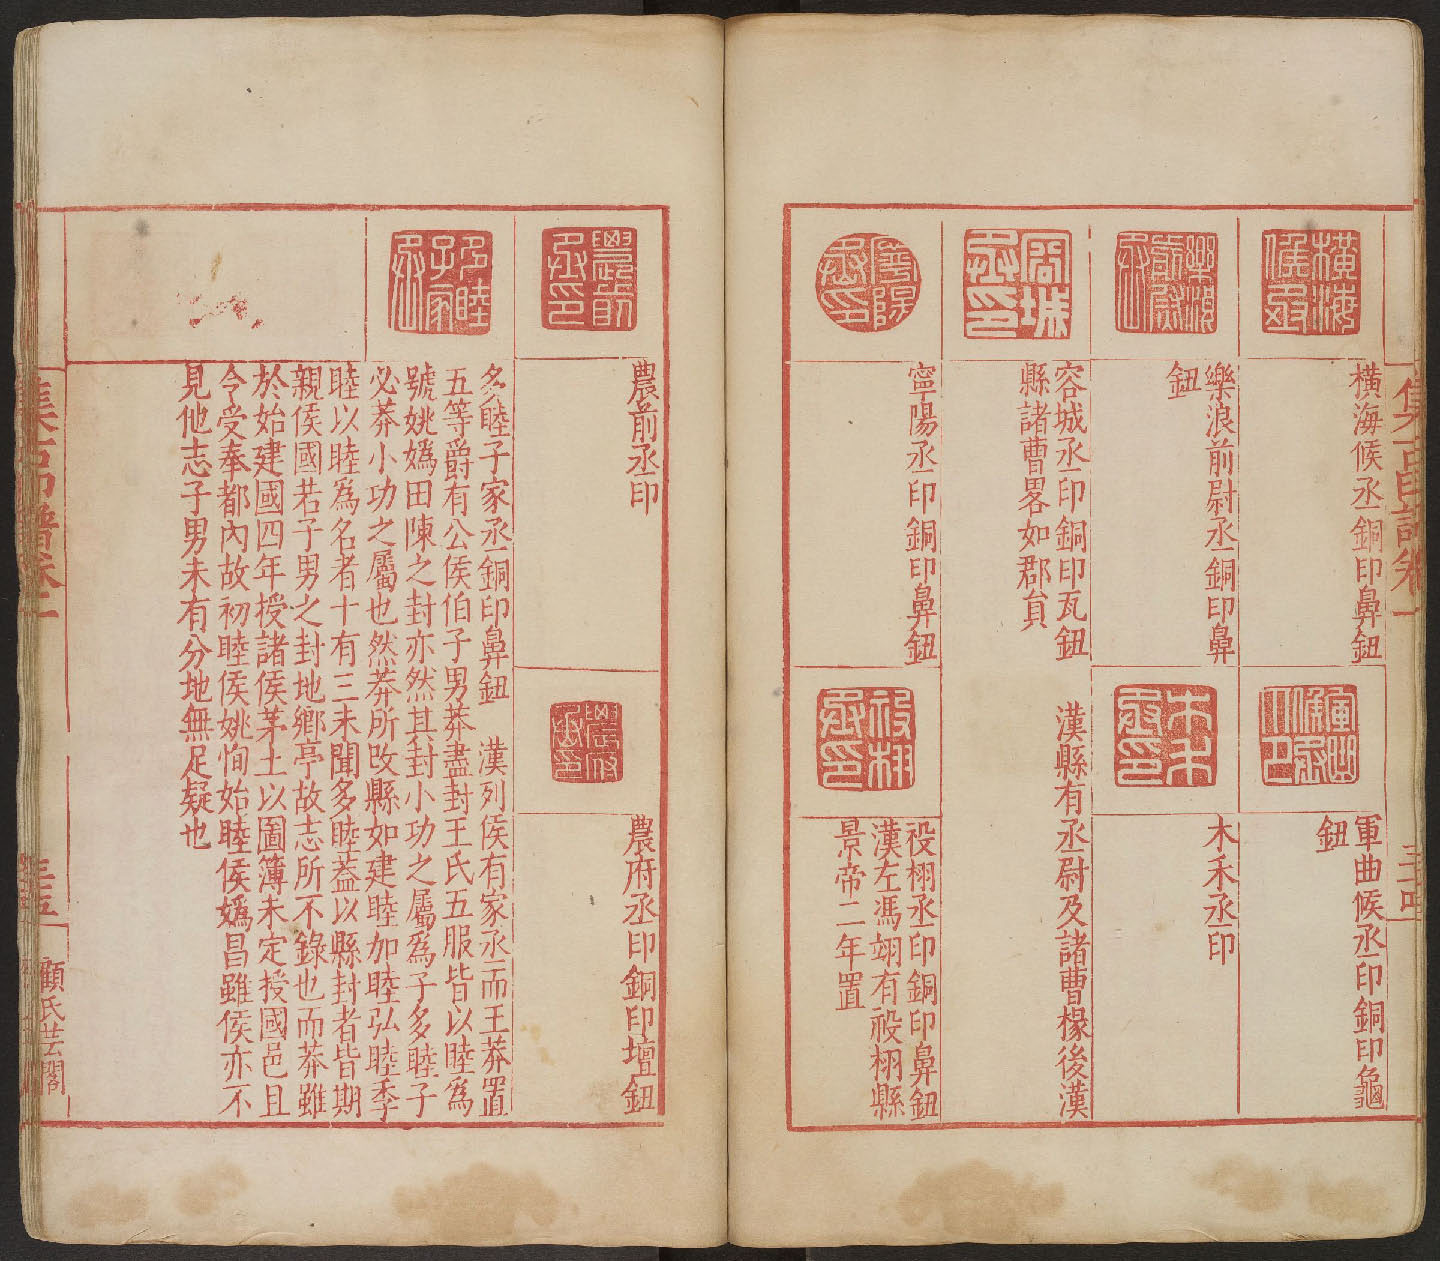 集古印譜卷一
三十四
橫海候丞銅印鼻鈕
軍曲候丞印銅印龜
鈕
樂浪前尉丞銅印鼻
鈕
木禾丞印
容城丞印銅印瓦鈕　漢縣有丞尉及諸曹掾後漢
縣諸曹畧如郡貟
寧陽丞印銅印鼻鈕
祋栩丞印銅印鼻鈕
漢左馮翊有祋栩縣
景帝二年置
農前丞印
農府丞印銅印壇鈕
多睦子家丞銅印鼻鈕　漢列侯有家丞而王莽置
五等爵有公侯伯子男莽盡封王氏五服皆以睦爲
號姚嬀田陳之封亦然其封小功之屬爲子多睦子
必莽小功之屬也然莽所改縣如建睦加睦弘睦季
睦以睦爲名者十有三未聞多睦蓋以縣封者皆期
親侯國若子男之封地鄉亭故志所不錄也而莽雖
於始建國四年授諸侯茅土以圖簿未定授國邑且
令受奉都內故初睦侯姚恂始睦侯嬀昌雖侯亦不
見他志子男未有分地無足疑也
集古印譜卷一
三十五
顧氏芸閣